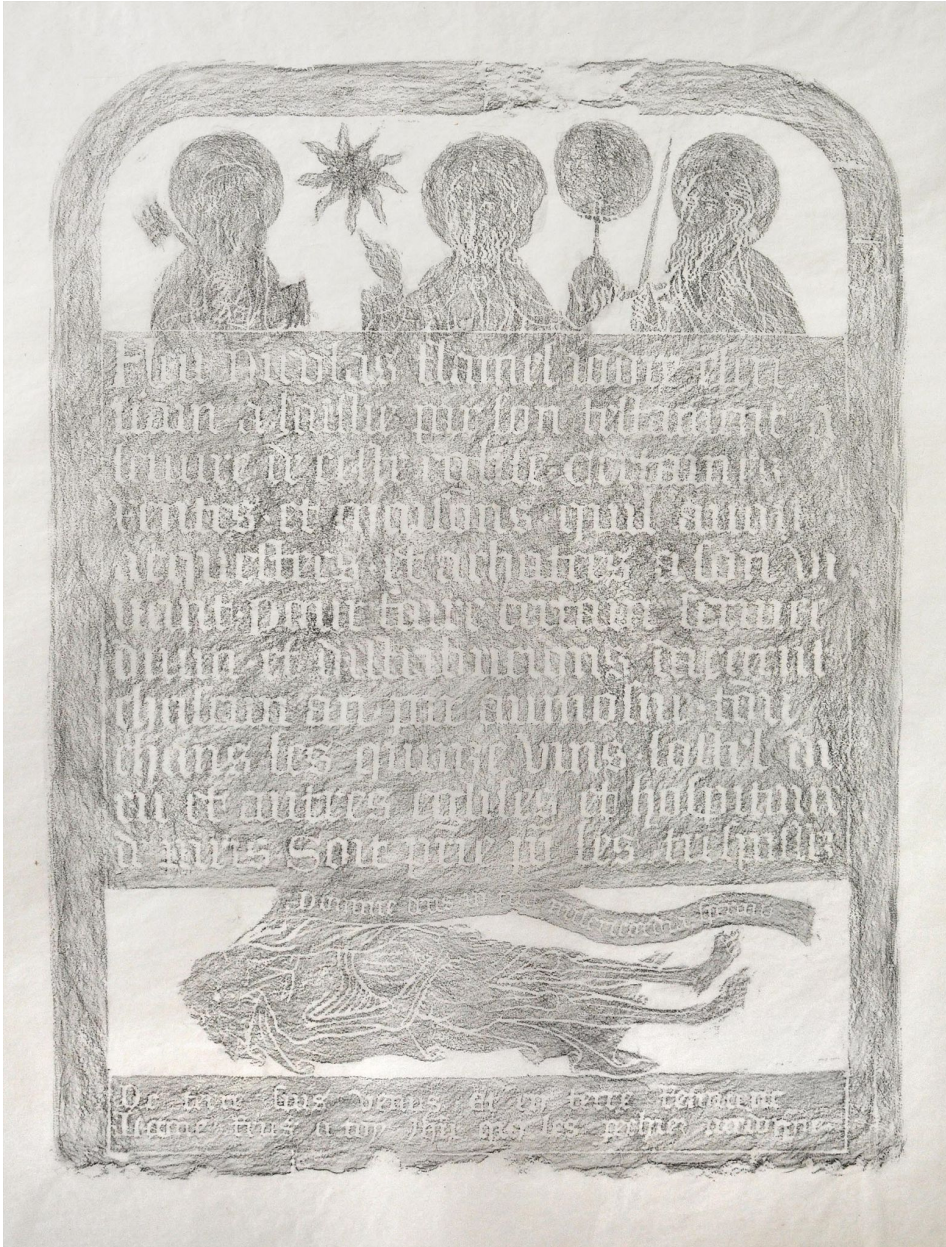 Feu Nicolas flamel iadis escri
uain a laissie par son testament a
leuure de ceste eglise certaines
rentes et maisons quil auoit
acquestees et achatees a son vi
uant pour faire certain seruice
diuin et distribucions dargent
chascun an par aumosne tou
chans les quinze vins lostel di
eu et autres eglises et hospitaux
paris Soit prie les trespassez
Domine deus in tua misericordia speraui
De terre suis venus et en terre retourne
Lame rens a toy ihu qui les pechiez pardonne